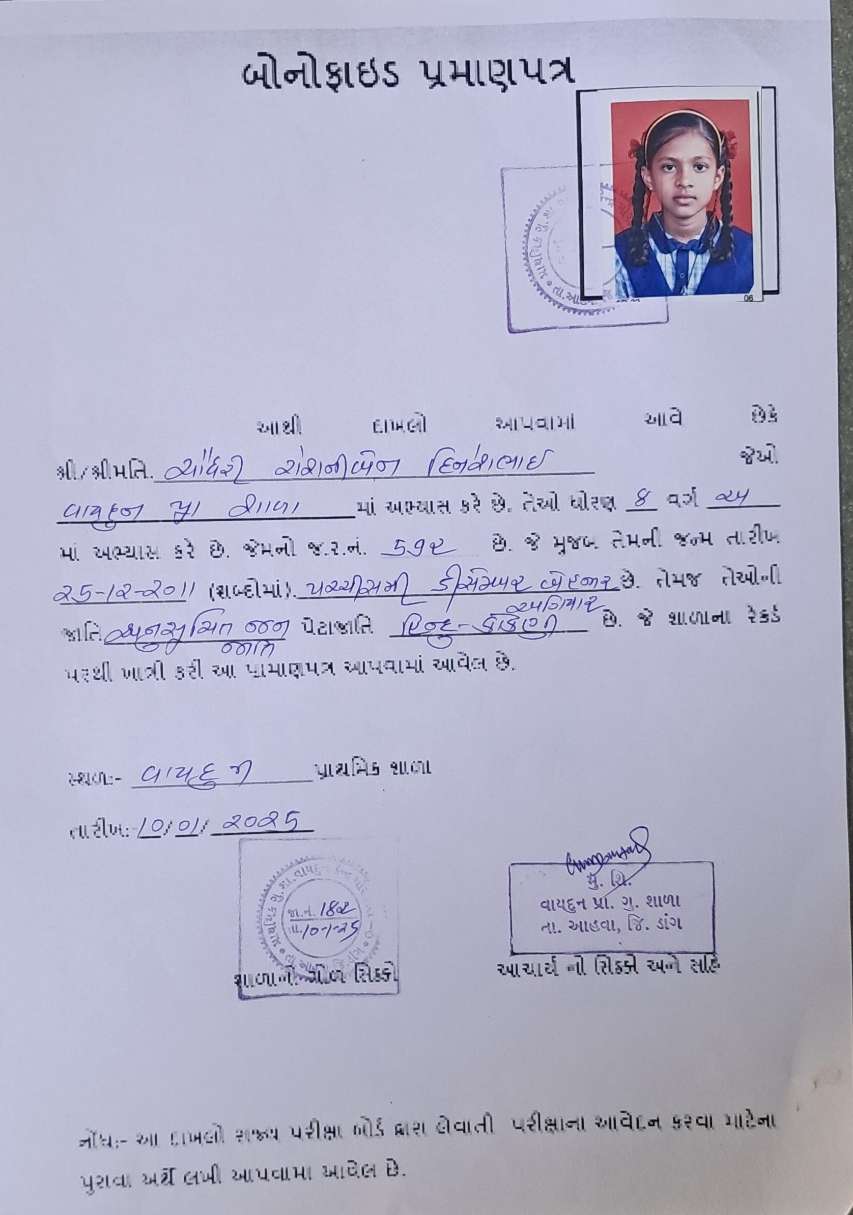 બોનોફાઇડ પ્રમાણપત્ર
06
આથી દાખલો આપવામાં આવે છેકે
શ્રી/શ્રીમતિ. ચૌધરી રોશનીબેન દિનેશભાઇ જેઓ
વાયદુન પ્રા શાળા માં અભ્યાસ કરે છે. તેઓ ધોરણ 8 વર્ગ અ
માં અભ્યાસ કરે છે. જેમનો જ.ર.નં. 592 છે. જે મુજબ તેમની જન્મ તારીખ
25-12-2011 (શબ્દોમાં). પચ્ચીસમી ડીસેમ્બર બેહજાર છે. તેમજ તેઓની
અગિયાર
જાતિ અનુસુચિત જન પેટાજાતિ હિન્દુ-કોંકણી છે. જે શાળાના રેકર્ડ
જાતિ
પરથી ખાત્રી કરી આ પ્રામાણપત્ર આપવામાં આવેલ છે.
સ્થળ:- વાયદુન પ્રાથમિક શાળા
તારીખ:- 10/01/2025
જા.નં. 182
તા. 10-1-25
મુ. શિ.
વાયદુન પ્રા. ગુ. શાળા
તા. આહવા, જિ. ડાંગ
શાળાનો ગોળ સિક્કો
આચાર્ય નો સિક્કો અને સહિ
નોંધ:- આ દાખલો રાજ્ય પરીક્ષા બોર્ડ દ્વારા લેવાતી પરીક્ષાના આવેદન કરવા માટેના
પુરાવા અર્થે લખી આપવામા આવેલ છે.